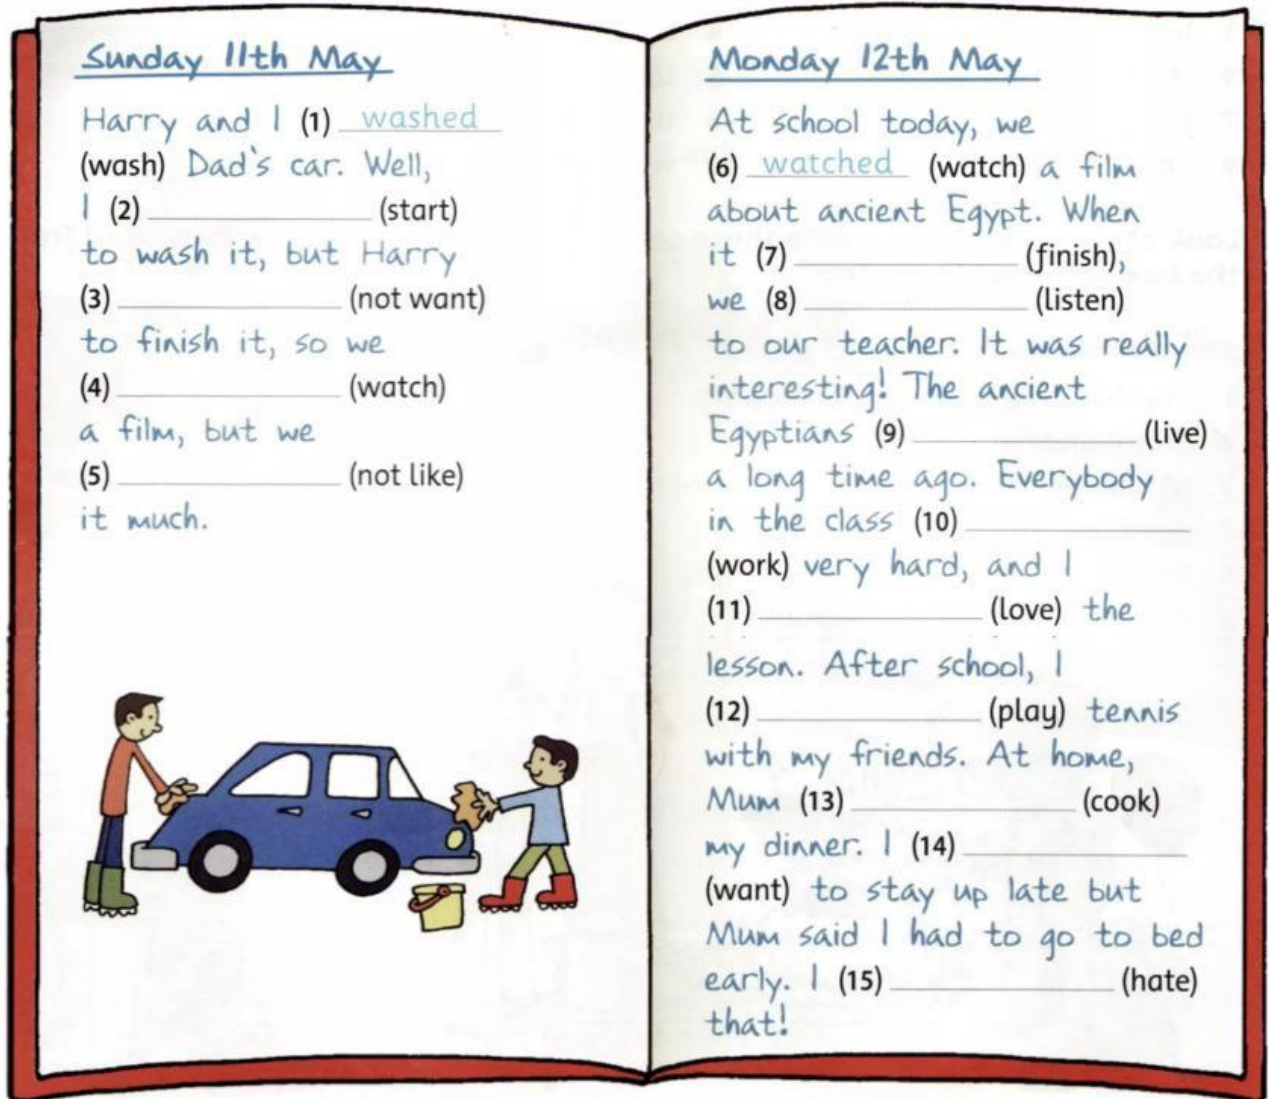 Sunday 11th May
Harry and I (1) washed
(wash) Dad's car. Well,
I (2) ____________ (start)
to wash it, but Harry
(3) ____________ (not want)
to finish it, so we
(4) ____________ (watch)
a film, but we
(5) ____________ (not like)
it much.
Monday 12th May
At school today, we
(6) watched (watch) a film
about ancient Egypt. When
it (7) ____________ (finish),
we (8) ____________ (listen)
to our teacher. It was really
interesting! The ancient
Egyptians (9) ____________ (live)
a long time ago. Everybody
in the class (10) ____________
(work) very hard, and I
(11) ____________ (love) the
lesson. After school, I
(12) ____________ (play) tennis
with my friends. At home,
Mum (13) ____________ (cook)
my dinner. I (14) ____________
(want) to stay up late but
Mum said I had to go to bed
early. I (15) ____________ (hate)
that!